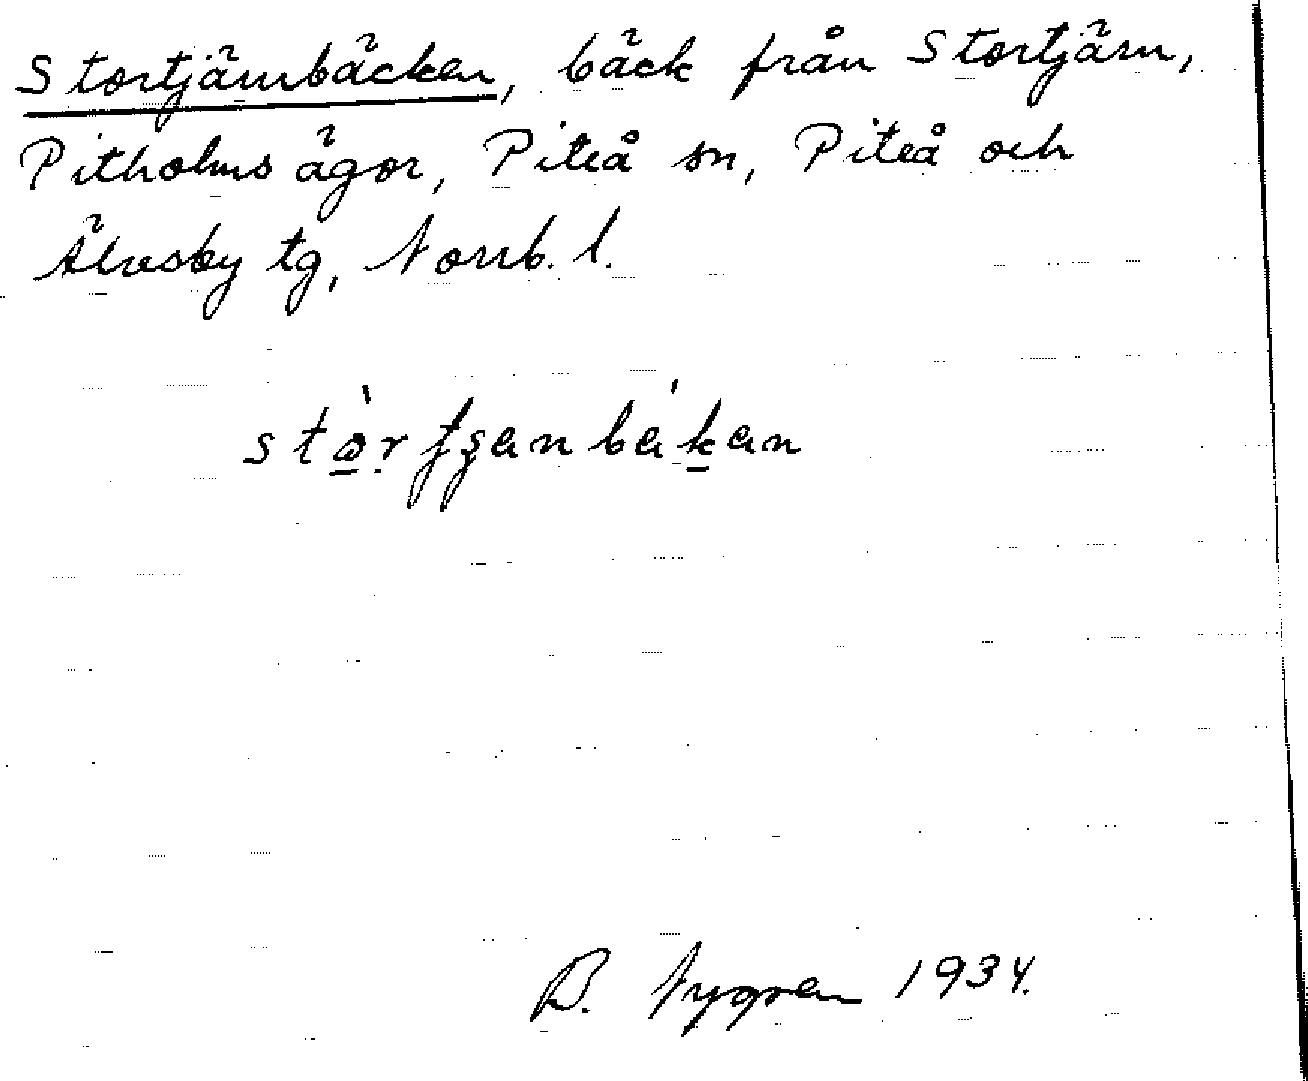 Stortjärnbäcken, bäck från Stortjärn,
Pitholms ägor, Piteå sn, Piteå och
Älvsby tg, Norrb. l.
B. Nygren 1934.